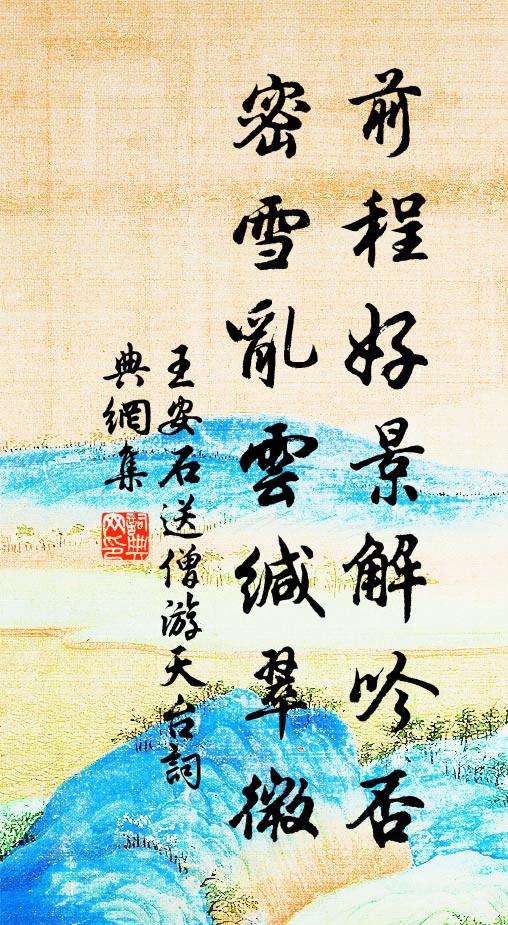 前程好景解吟否
密雪亂雲緘翠微
王安石送僧游天台詞
典網集
詞典網印